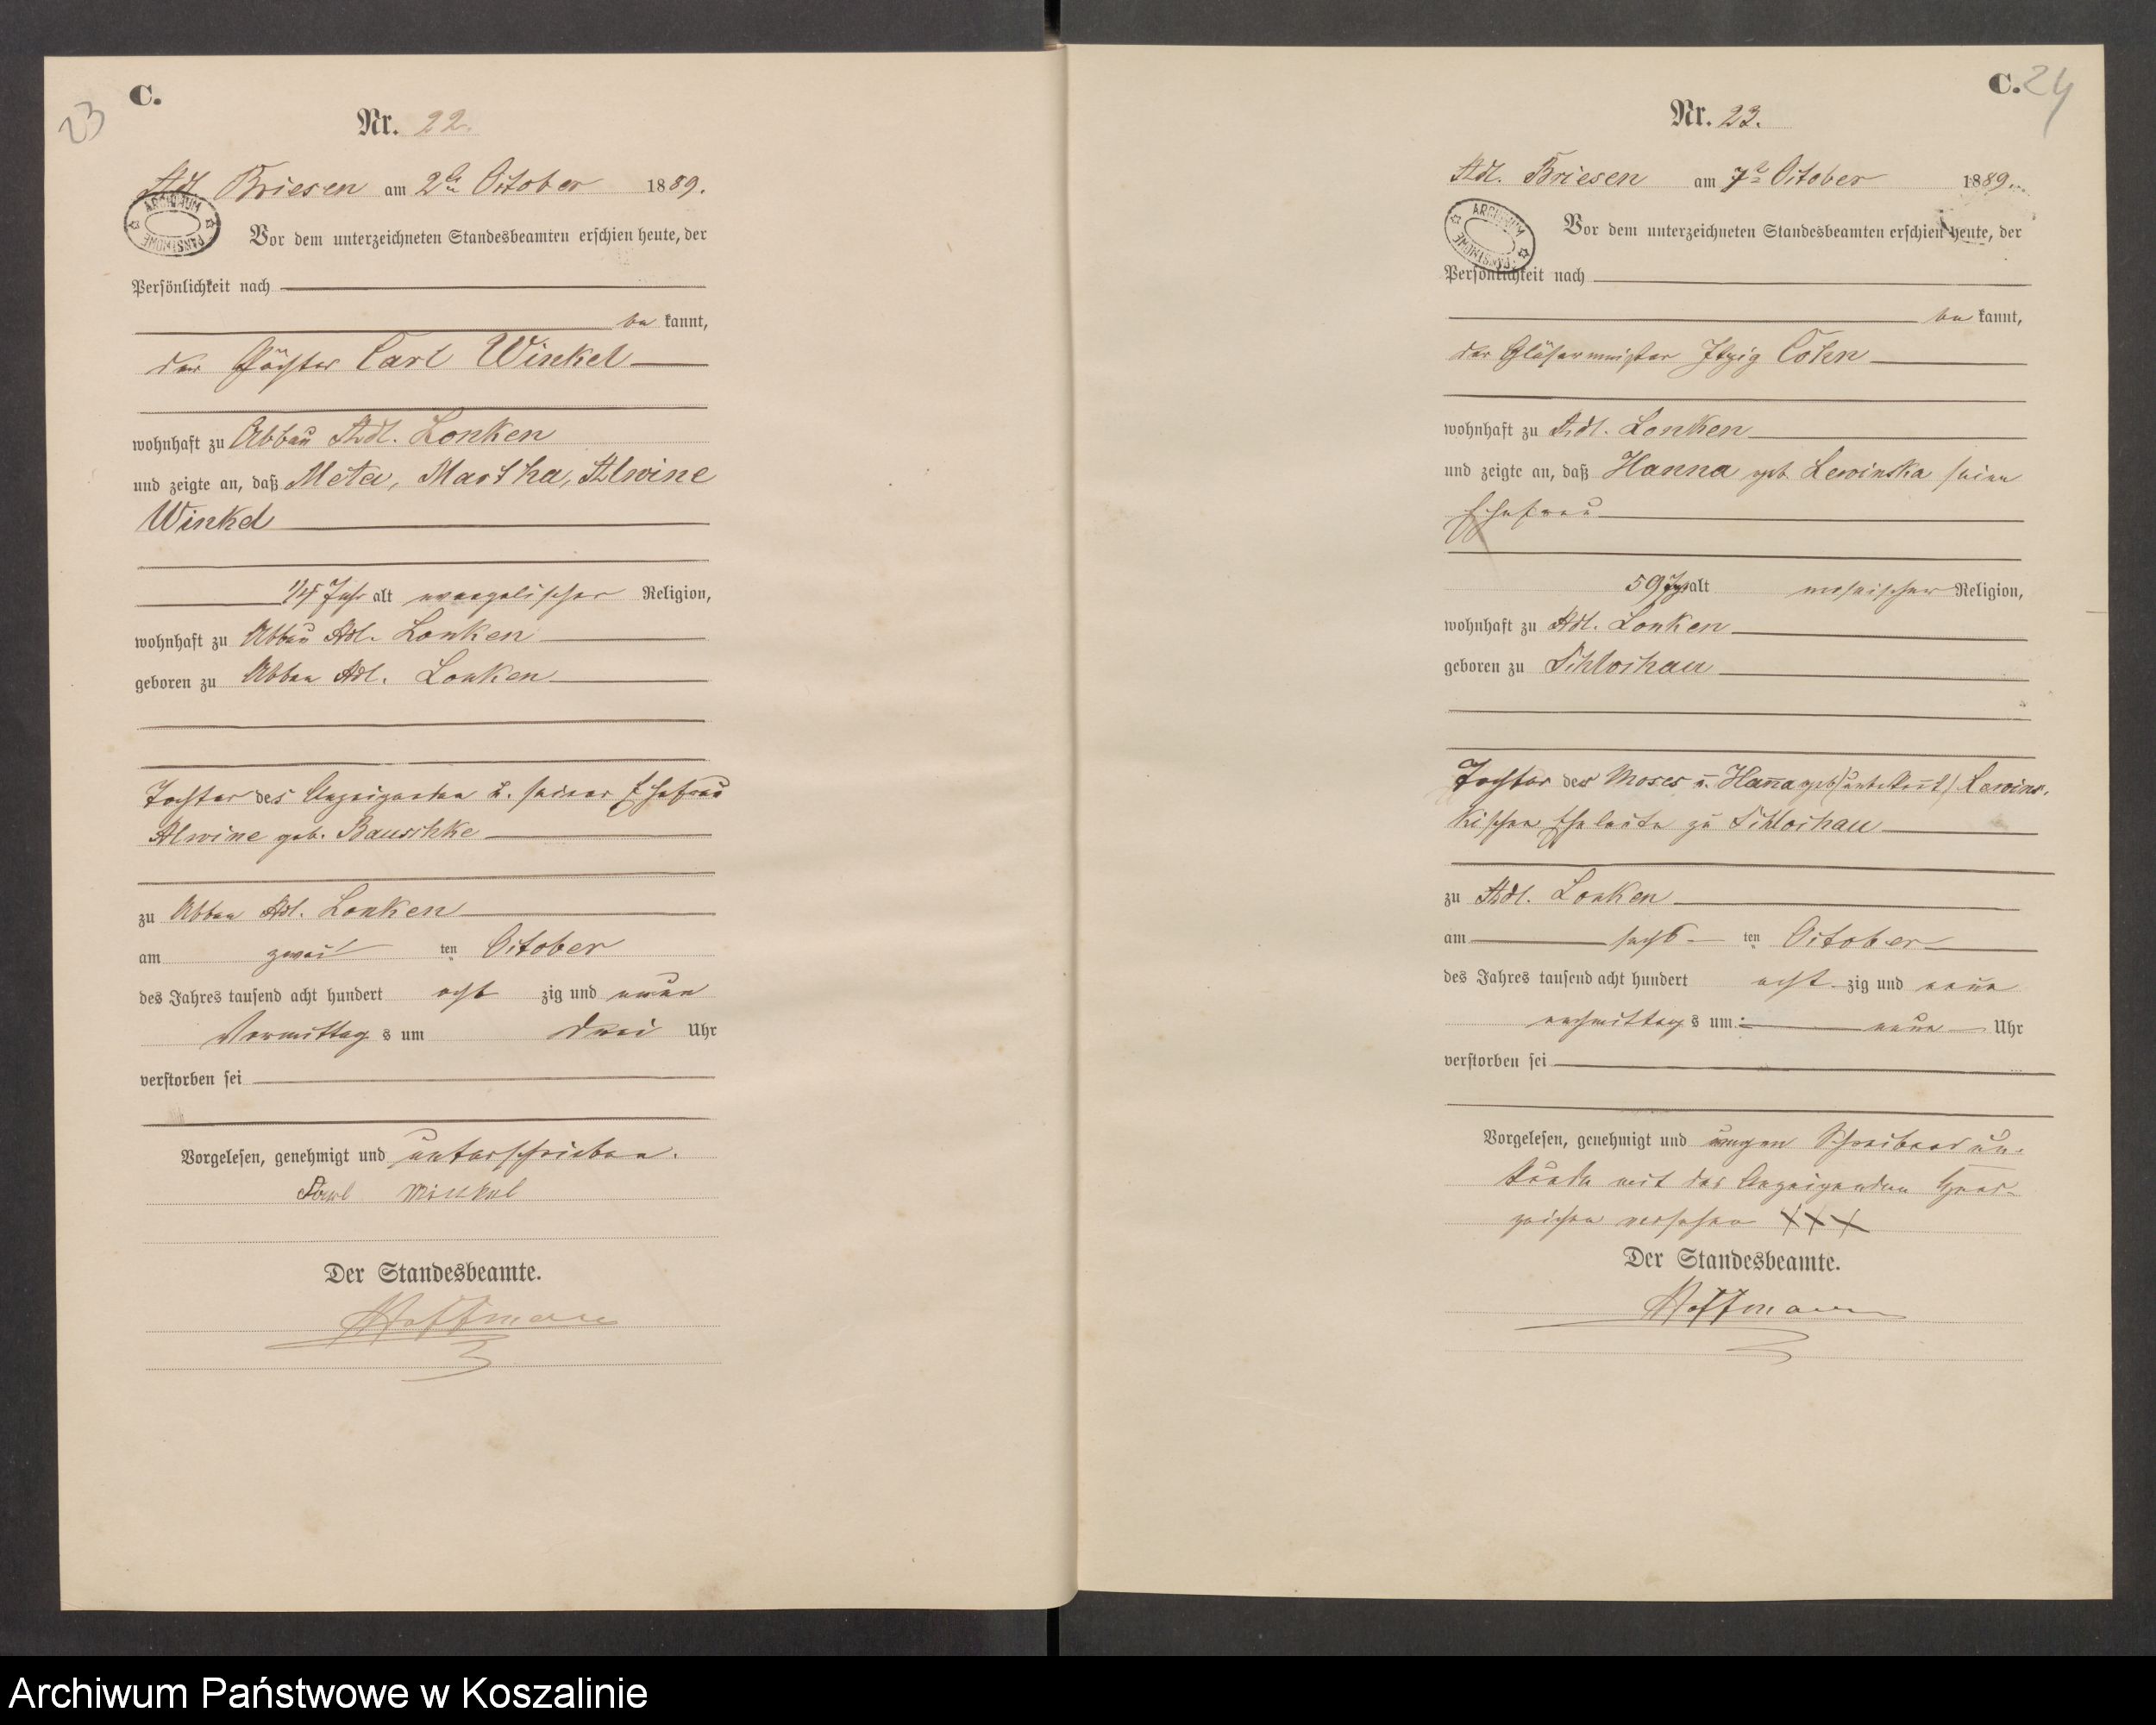 23
C.
Nr. 22.
Adl. Briesen am 2ten October 1889.
ARCHIWUM PAŃSTWOWE
Vor dem unterzeichneten Standesbeamten erschien heute, der
Persönlichkeit nach
be kannt,
der Pächter Carl Winkel
wohnhaft zu Abbau Adl. Lonken
und zeigte an, daß Meta, Martha, Alwine
Winkel
1/4 Jahr alt evangelischer Religion,
wohnhaft zu Abbau Adl. Lonken
geboren zu Abbau Adl. Lonken
Tochter des Anzeigenden u. seiner Ehefrau
Alwine geb. Bauschke
zu Abbau Adl. Lonken
am zwei ten October
des Jahres tausend acht hundert acht zig und neun
Vormittag s um drei Uhr
verstorben sei
Vorgelesen, genehmigt und unterschrieben.
Carl Winkel
Der Standesbeamte.
Hoffmann
C. 24
Nr. 23.
Adl. Briesen am 7t October 1889.
ARCHIWUM PAŃSTWOWE
Vor dem unterzeichneten Standesbeamten erschien heute, der
Persönlichkeit nach
be kannt,
der Gläsermeister Itzig Cohn
wohnhaft zu Adl. Lonken
und zeigte an, daß Hanna geb. Lewinska seine
Ehefrau
59 Jahr alt mosaischer Religion,
wohnhaft zu Adl. Lonken
geboren zu Schlochau
Tochter des Moses u. Hanna geb (unbekannt) Lewins-
kischen Eheleute zu Schlochau
zu Adl. Lonken
am sechs ten October
des Jahres tausend acht hundert acht zig und neun
nachmittag s um neun Uhr
verstorben sei
Vorgelesen, genehmigt und wegen Schreibens un-
kunde mit des Anzeigenden Hand-
zeichen versehen XXX
Der Standesbeamte.
Hoffmann
Archiwum Państwowe w Koszalinie